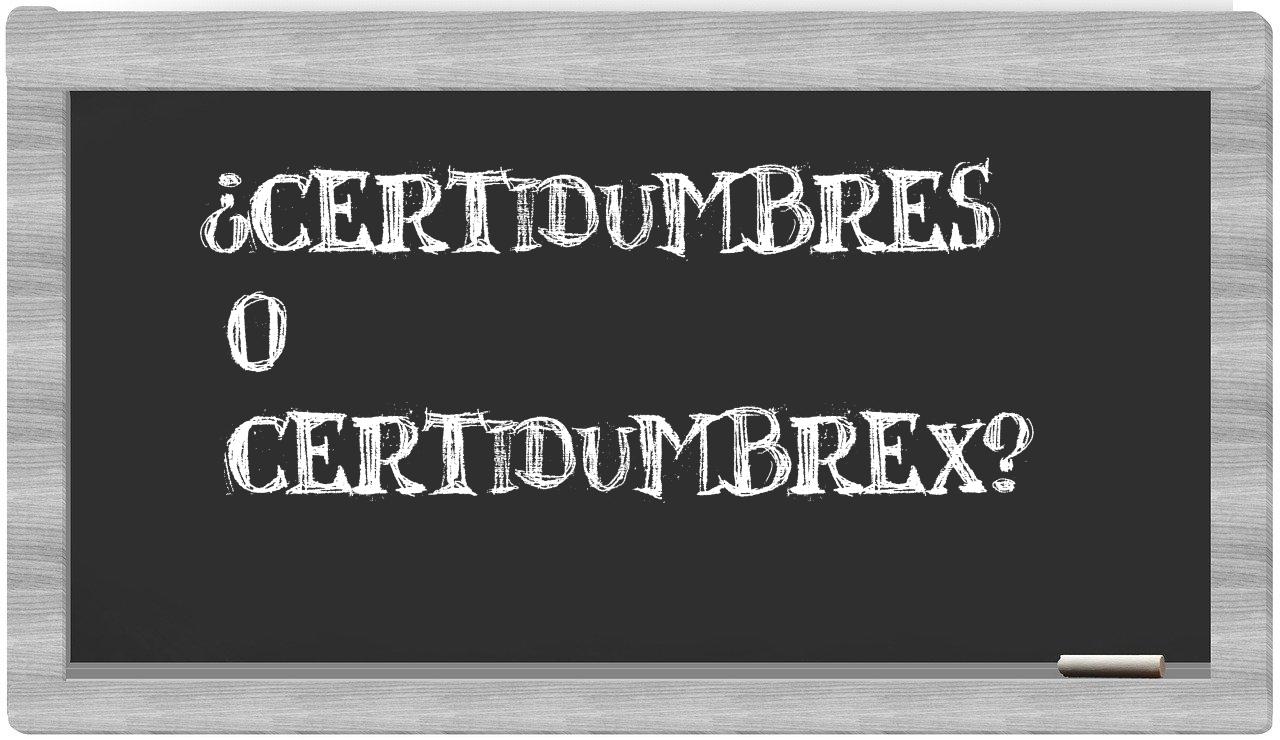 ¿CERTIDUMBRES
O
CERTIDUMBREX?